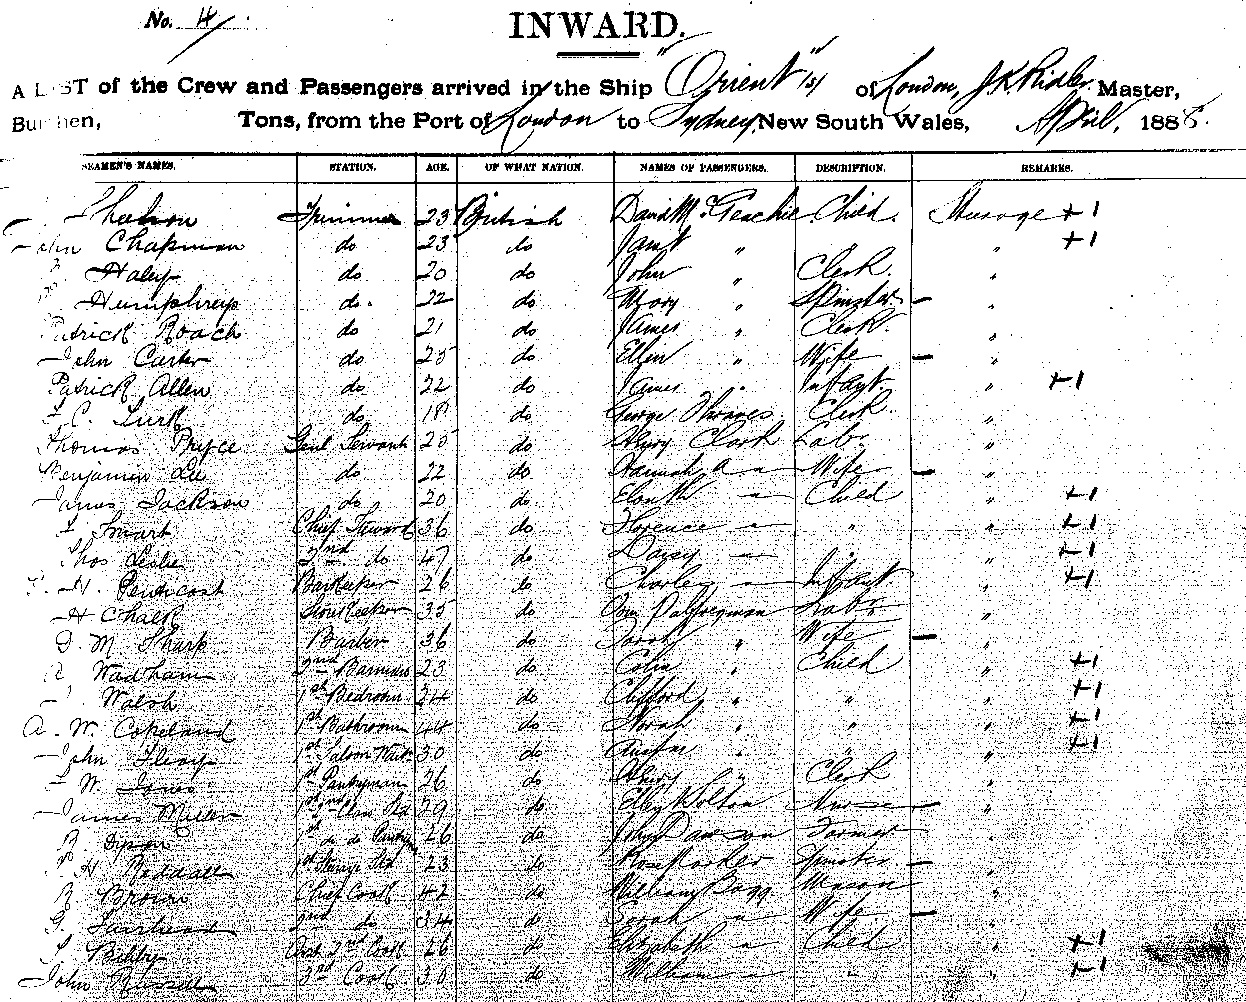 No. 4
INWARD.
A LIST of the Crew and Passengers arrived in the Ship "Orient" of London, Master,
Burthen, Tons, from the Port of London to Sydney, New South Wales, April, 1888.
SEAMEN'S NAMES. STATION. AGE. OF WHAT NATION. NAMES OF PASSENGERS. DESCRIPTION. REMARKS.
Trimmer 23 British David Child Steerage +1
John Chapman do 23 do Janet " " +1
Haley do 20 do John " Clerk "
Humphreys do. 22 do Mary " Spinster - "
Patrick Roach do 21 do James " Clerk "
John Carter do 25 do Ellen " Wife - "
Patrick Allen do 22 do James " Infant " +1
Turk do 18 do George Clerk "
Thomas Pryce Genl Servant 25 do Henry Clark Labr "
Benjamin Lee do 22 do Hannah A " Wife - "
James Jackson do 20 do Elizth " Child " +1
Smart Chief Steward 36 do Florence " " " +1
Thos Leslie 2nd do 47 do Daisy " " " +1
H. Pentecost Barkeeper 26 do Charles " Infant " +1
H Chalk Storekeeper 35 do Labr "
D. M. Sharp Barber 36 do Sarah " Wife - "
Wadham 2nd 23 do Colin " Child " +1
Walsh 1st Bedroom 24 do Clifford " " " +1
A. W. Copeland 1st Bathroom 44 do Norah " " " +1
John 1st Saloon Wait 30 do " " " +1
W. Jones 1st Pantryman 26 do Henry " Clerk "
James Miller 29 do Nurse - "
Dixon 26 do John Dawson Farmer "
H Reddall 23 do Spinster - "
Brown Chief Cook 42 do William Bagg Mason "
G. 2nd do 34 do Sarah " Wife - "
Bibby 2nd Cook 26 do Elizabeth " Child " +1
John Russell 3rd Cook 30 do William " " " +1